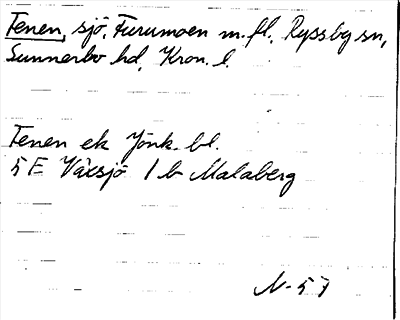 Tenen, sjö, Furumoen m.fl., Ryssby sn,
Sunnerbo hd, Kron. l.
Tenen ek Jönk. bl.
5 E Växsjö 1 b Malaberg
N-57